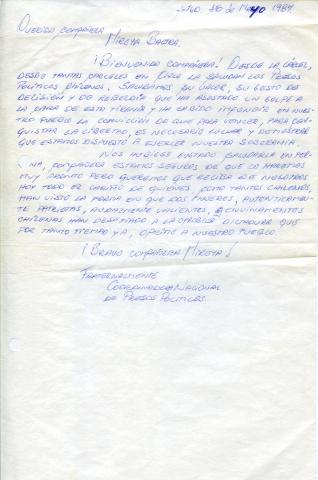 STGO. 20 de Mayo 1987
QUERIDA COMPAÑERA
MIREYA BALTRA.
¡BIENVENIDA COMPAÑERA! DESDE LA CÁRCEL,
DESDE TANTAS CARCELES EN CHILE LA SALUDAN LOS PRESOS
POLITICOS CHILENOS. SALUDAMOS SU VALOR, SU GESTO DE
DECISIÓN Y DE REBELDÍA QUE HA ASESTADO UN GOLPE A
LA CARA DE ESTA TIRANÍA Y HA SABIDO INFUNDIR EN NUES-
TRO PUEBLO LA CONVICCIÓN DE QUE PARA VENCER, PARA CON-
QUISTAR LA LIBERTAD, ES NECESARIO LUCHAR Y DEMOSTRAR
QUE ESTAMOS DISPUESTO A EJERCER NUESTRA SOBERANIA.
NOS HUBIESE GUSTADO SALUDARLA EN PER-
SONA, COMPAÑERA ESTAMOS SEGUROS DE QUE LO HAREMOS
MUY PRONTO PERO QUEREMOS QUE RECIBA DE NOSOTROS
HOY TODO EL CARIÑO DE QUIENES, COMO TANTOS CHILENOS,
HAN VISTO LA FORMA EN QUE DOS MUJERES, AUTENTICAMEN-
TE PATRIOTAS, AUDAZMENTE VALIENTES, E
CHILENAS HAN DESAFIADO A LA DICTADURA QUE
POR TANTO TIEMPO YA, OPRIME A NUESTRO PUEBLO.
¡BRAVO COMPAÑERA MIREYA!
FRATERNALMENTE
COORDINADORA NACIONAL
DE PRESOS POLITICOS.